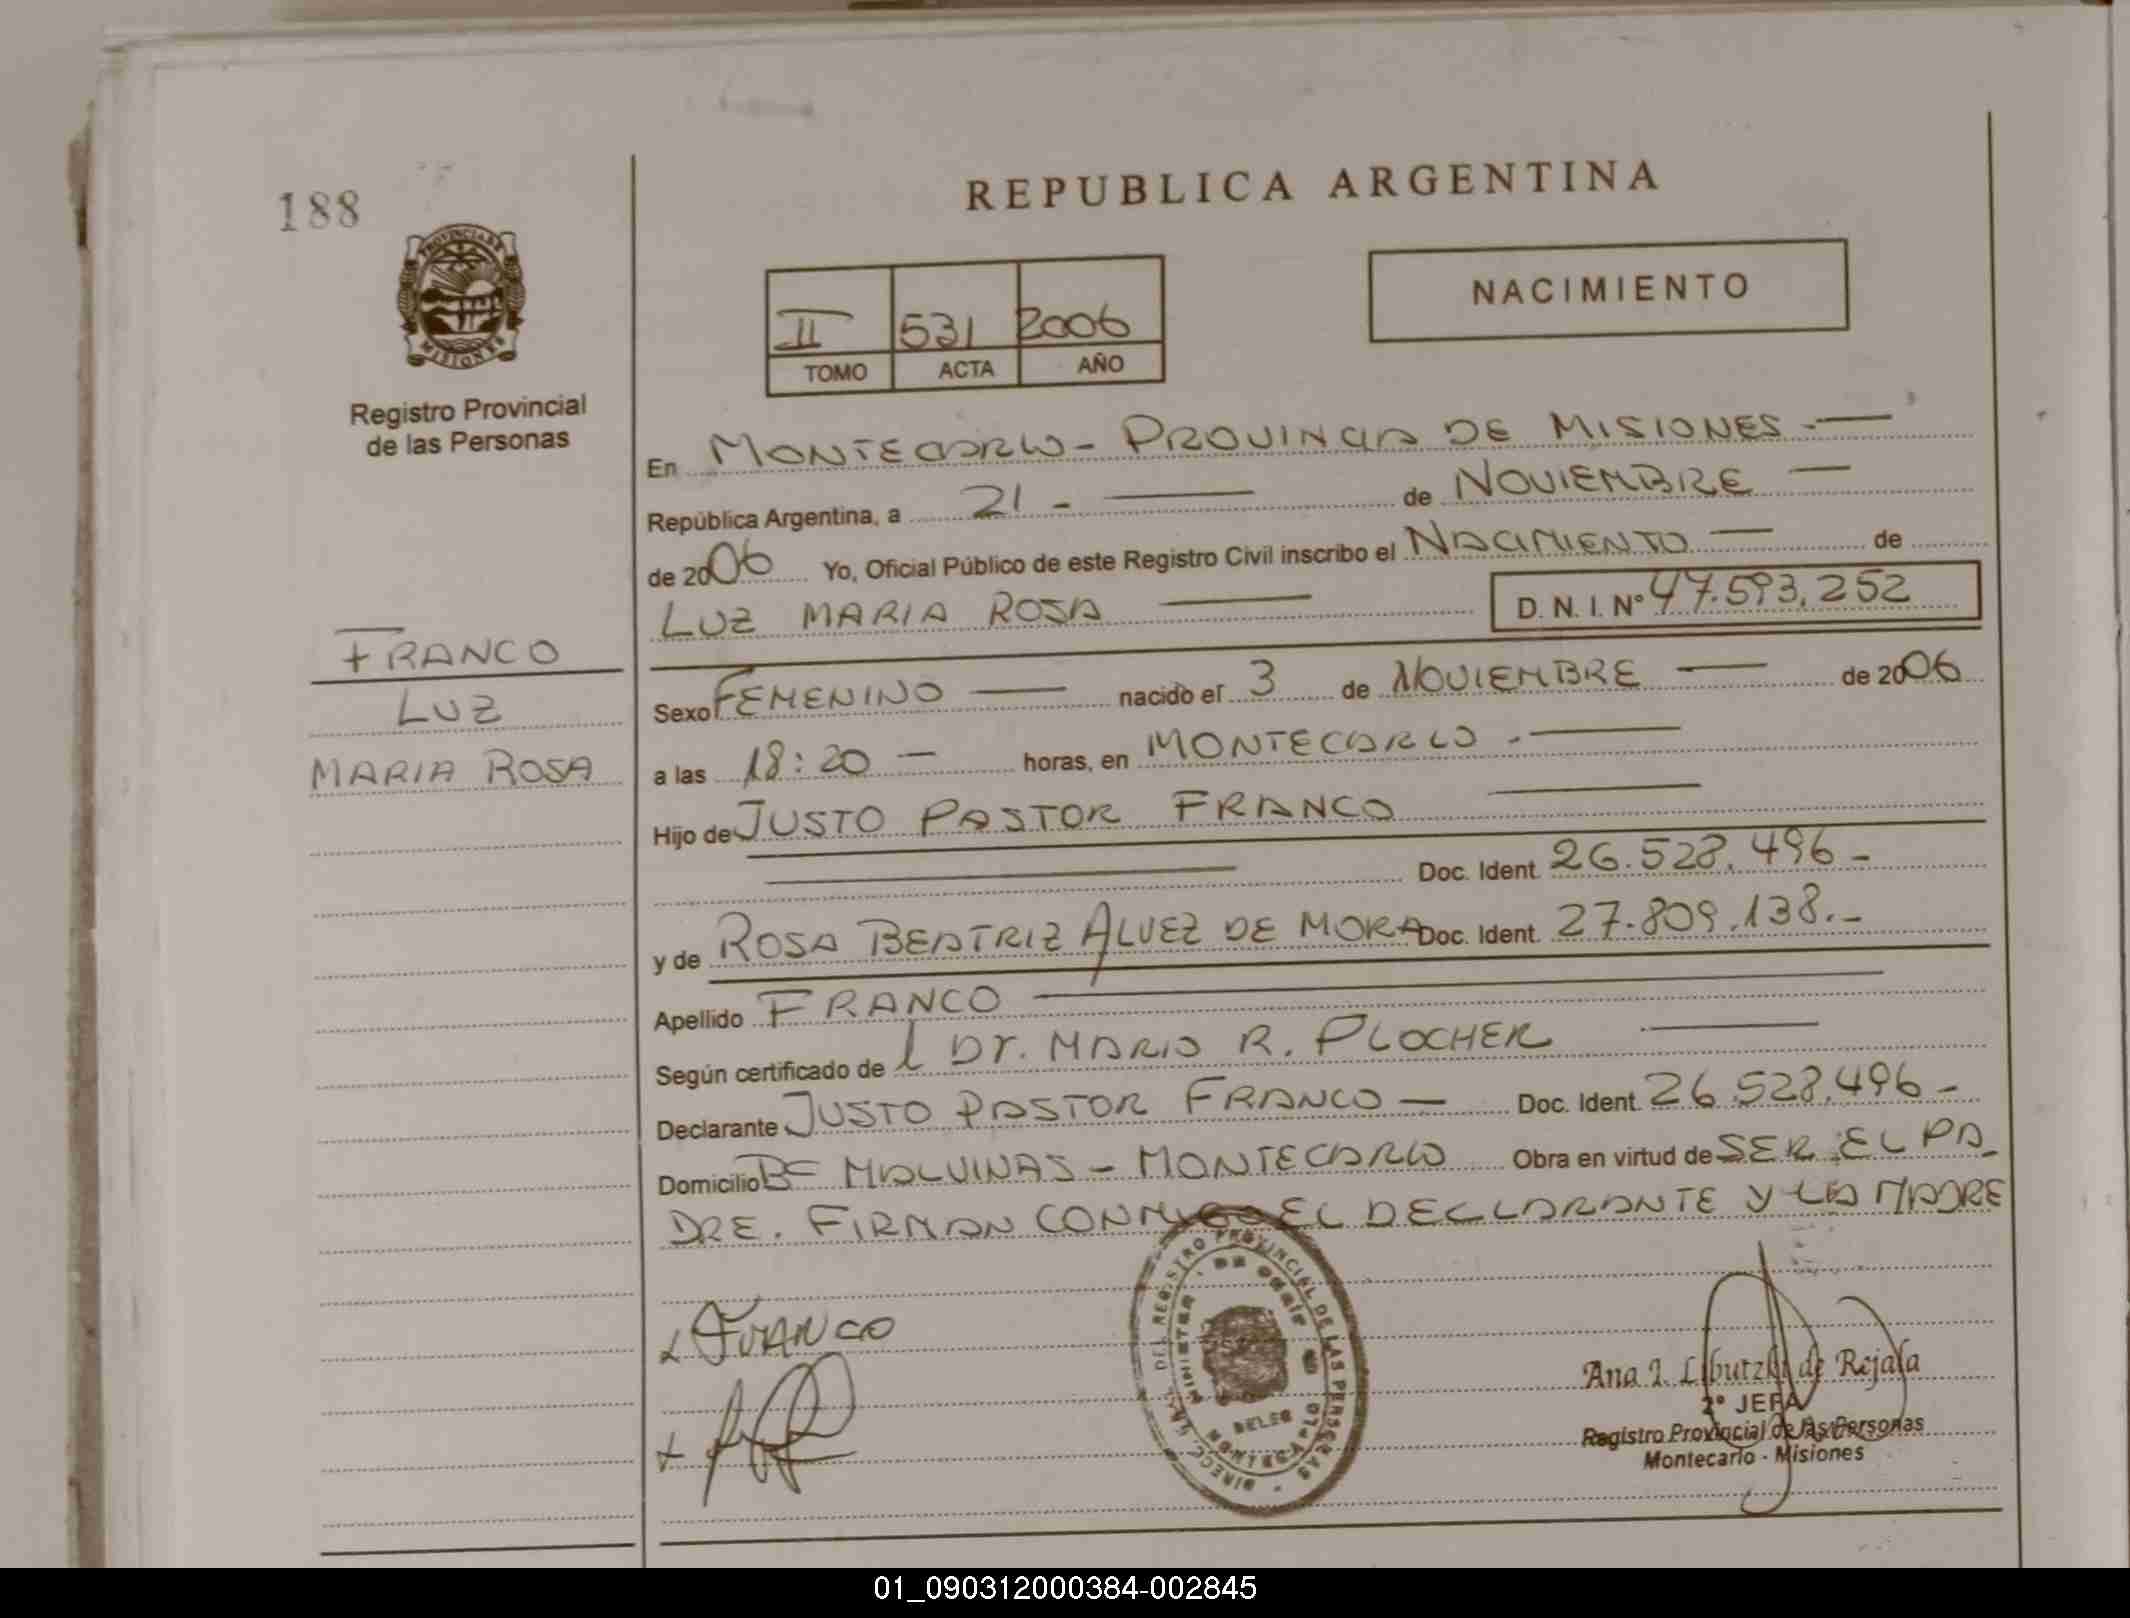 188
REPUBLICA ARGENTINA
PROVINCIA DE
MISIONES
Registro Provincial
de las Personas
II 531 2006
TOMO ACTA AÑO
NACIMIENTO
En MONTECARLO - PROVINCIA DE MISIONES.-
República Argentina, a 21 - de NOVIEMBRE
de 2006 Yo, Oficial Público de este Registro Civil inscribo el NACIMIENTO de
LUZ MARIA ROSA D. N. I. Nº 47.593.252
FRANCO
LUZ
MARIA ROSA
Sexo FEMENINO nacido el 3 de NOVIEMBRE de 2006
a las 18:20 - horas, en MONTECARLO.-
Hijo de JUSTO PASTOR FRANCO
Doc. Ident. 26.528.496-
y de ROSA BEATRIZ ALVEZ DE MORA Doc. Ident. 27.809.138.-
Apellido FRANCO
Según certificado de l Dr. MARIO R. PLOCHER
Declarante JUSTO PASTOR FRANCO - Doc. Ident. 26.528.496-
Domicilio Bº MALVINAS - MONTECARLO Obra en virtud de SER EL PA-
DRE. FIRMAN CONMIGO EL DECLARANTE Y LA MADRE
FRANCO
DEL REGISTRO PROVINCIAL DE LAS PERSONAS
DELEG
MONTECARLO
Ana I. Libutzki de Rejala
2º JEFA
Registro Provincial de las Personas
Montecarlo - Misiones
01_090312000384-002845